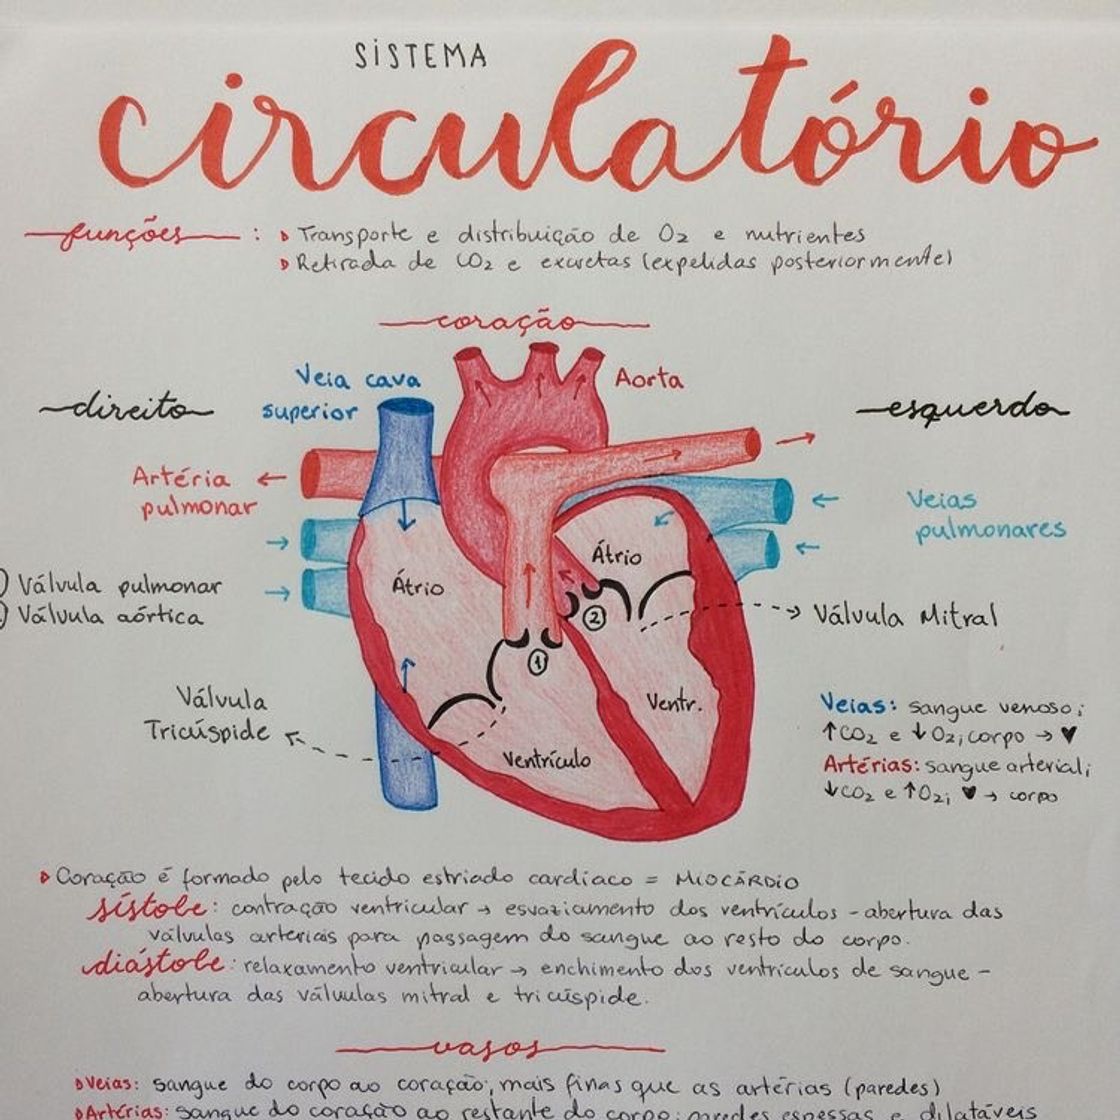 SISTEMA
circulatório
funções : Transporte e distribuição de O2 e nutrientes
Retirada de CO2 e excretas (expelidas posteriormente)
coração
Veia cava
superior
Aorta
direito
esquerdo
Artéria
pulmonar
Veias
pulmonares
Átrio
Átrio
Válvula pulmonar
Válvula aórtica
2
1
Válvula Mitral
Válvula
Tricúspide
Ventr.
Ventrículo
Veias: sangue venoso;
↑CO2 e ↓O2; corpo → ♥
Artérias: sangue arterial;
↓CO2 e ↑O2; ♥ → corpo
Coração é formado pelo tecido estriado cardíaco = MIOCÁRDIO
sístole: contração ventricular → esvaziamento dos ventrículos - abertura das
válvulas arteriais para passagem do sangue ao resto do corpo.
diástole: relaxamento ventricular → enchimento dos ventrículos de sangue -
abertura das válvulas mitral e tricúspide.
vasos
Veias: sangue do corpo ao coração; mais finas que as artérias (paredes)
Artérias: sangue do coração ao restante do corpo; paredes espessas e dilatáveis